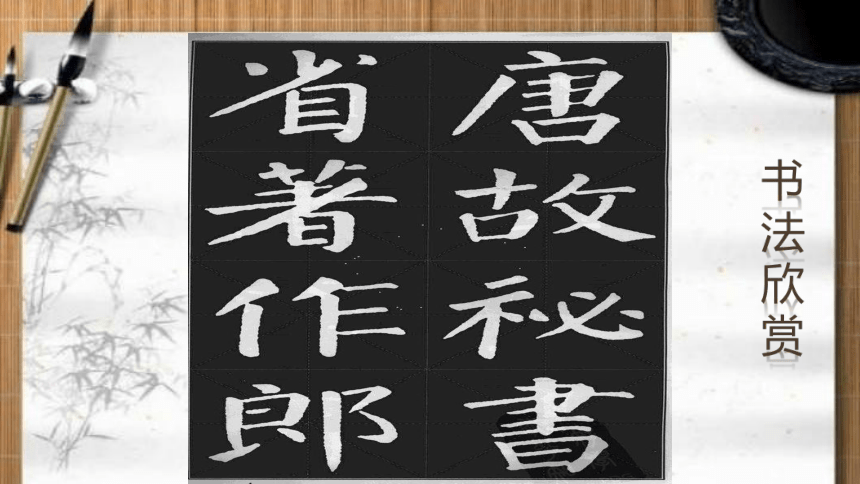 唐故祕書
省著作郎
书法欣赏